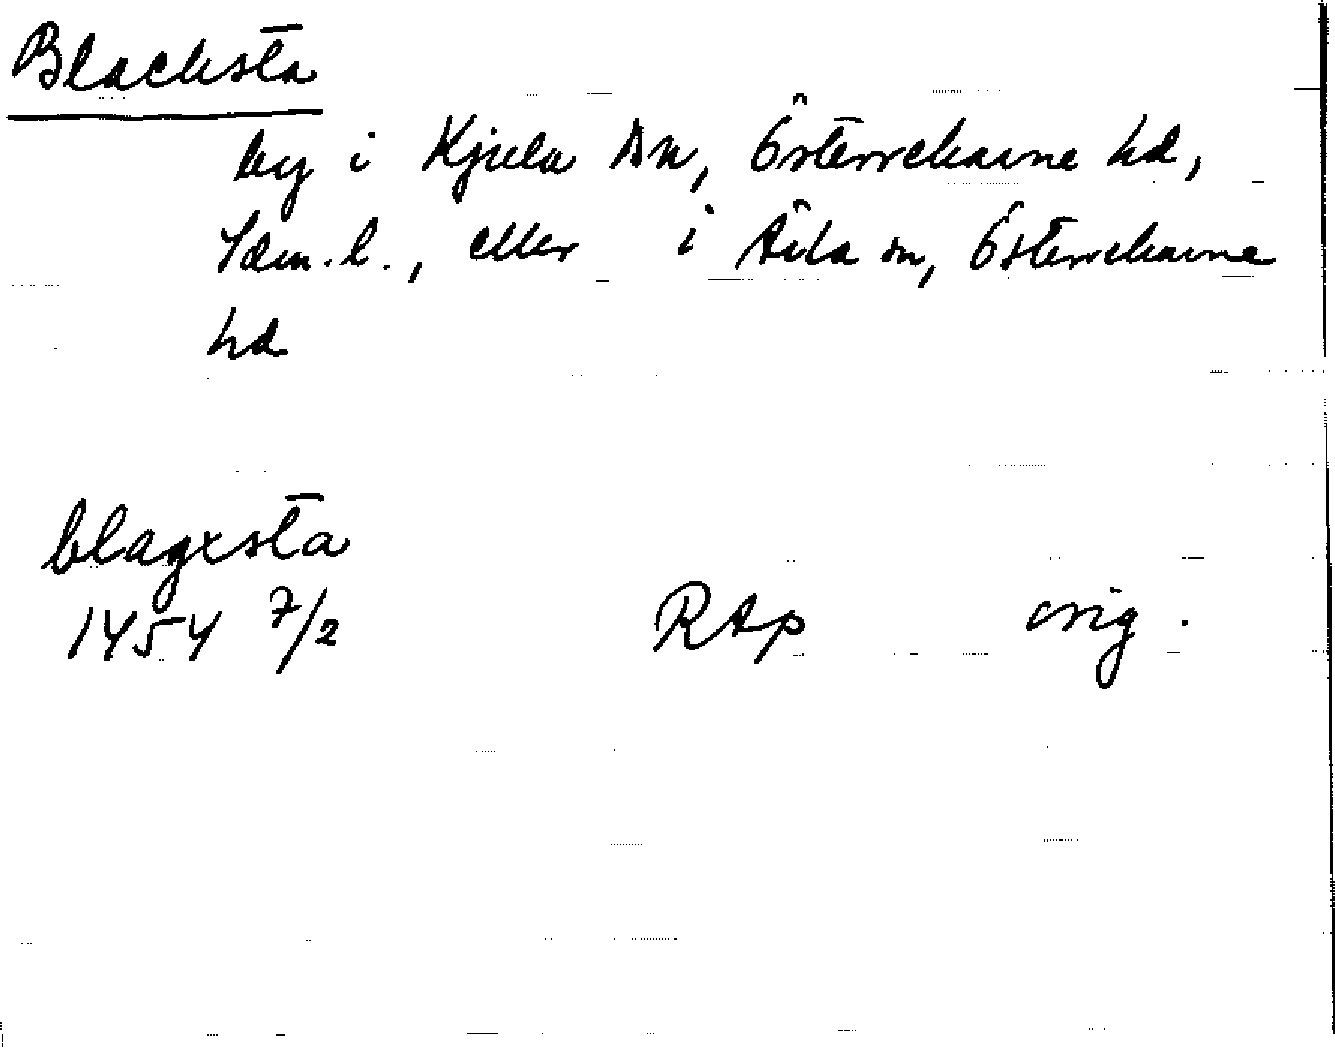 Blacksta
by i Kjula sn, Österrekarne hd,
Södm. l., eller i Sila sn, Österrekarne
hd
blagxsta
1454 7/2 RAp orig.